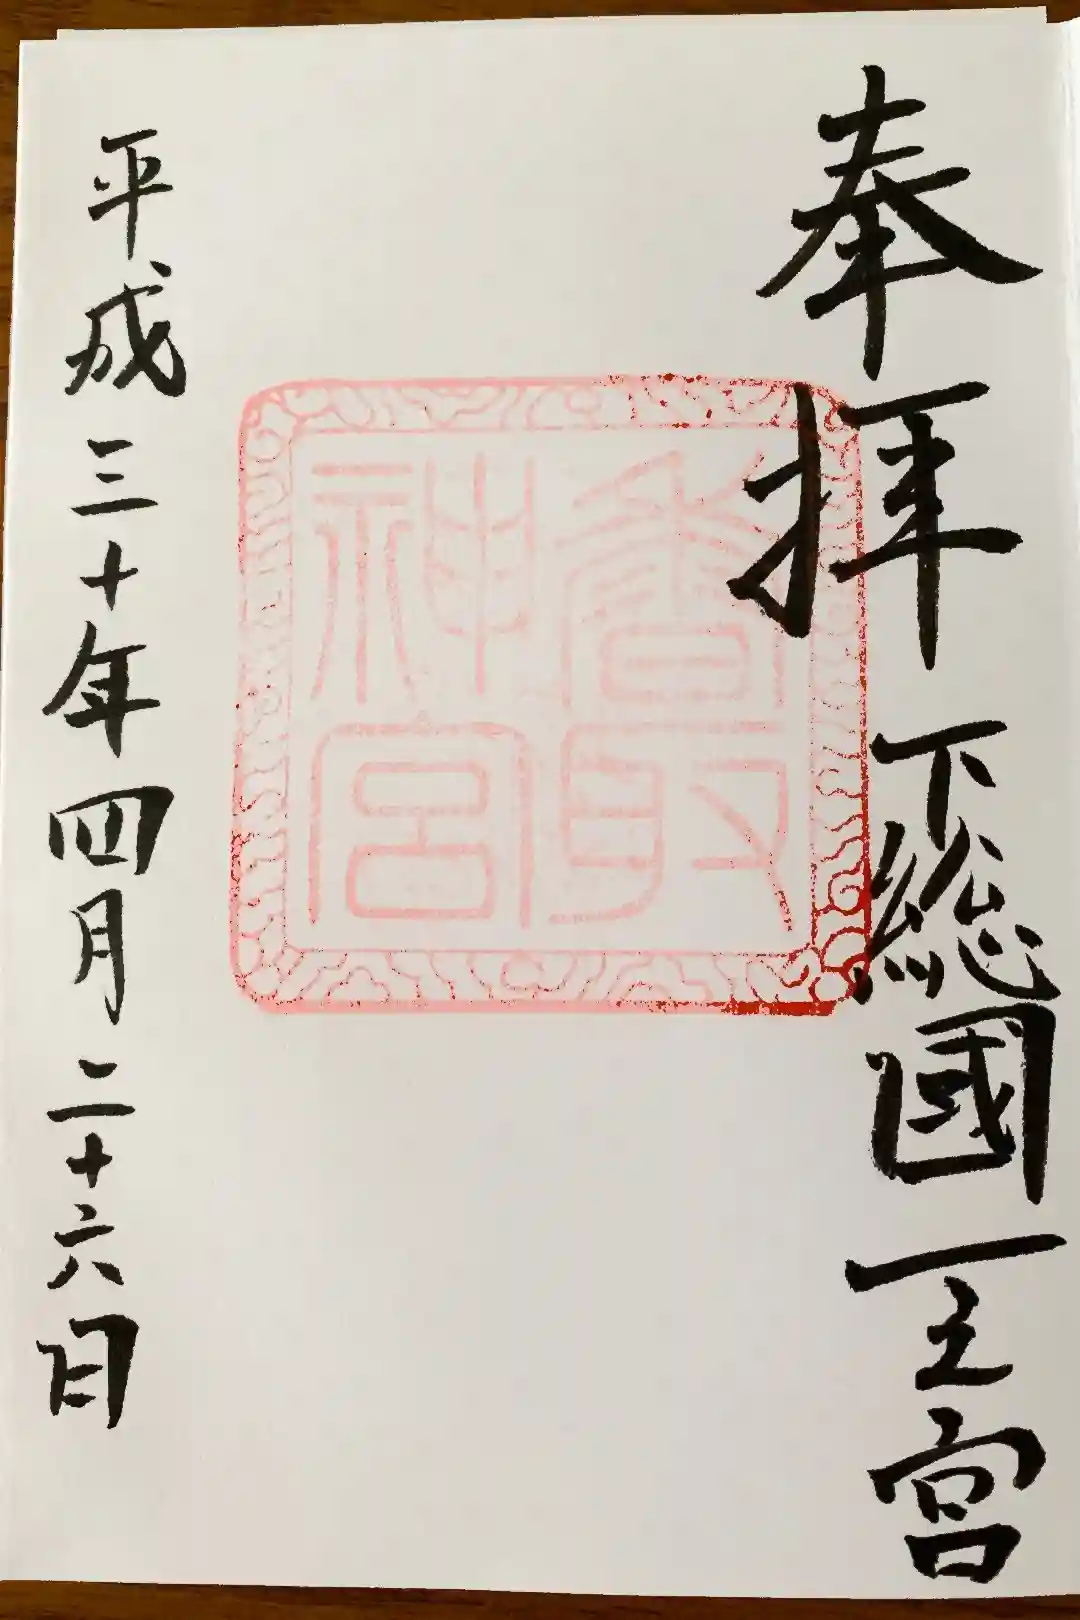 奉拝 下総國一之宮
香取神宮
平成三十年四月二十六日